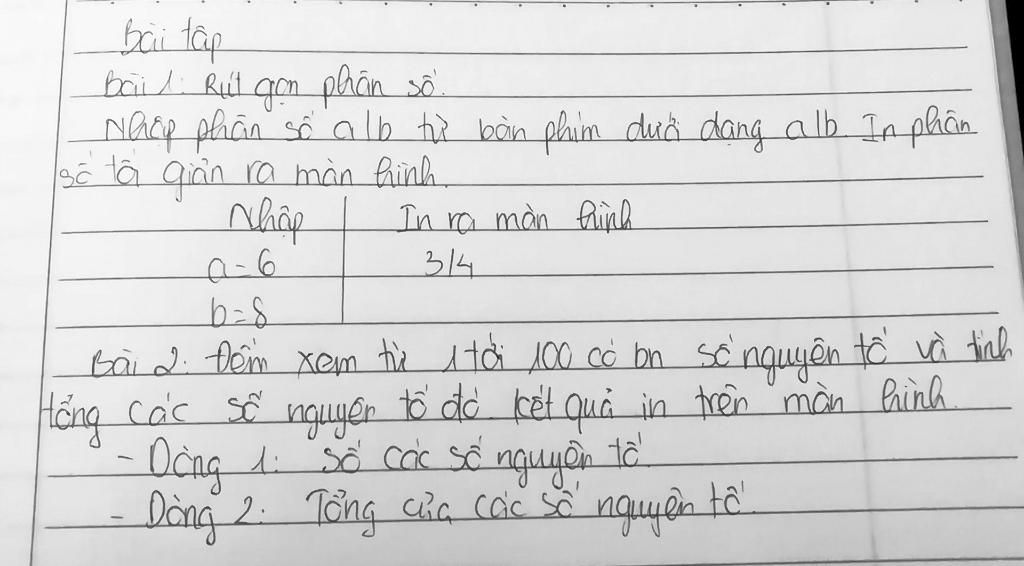 Bài tập
Bài 1: Rút gọn phân số.
Nhập phân số a/b từ bàn phím dưới dạng a/b. In phân
số tối giản ra màn hình.
Nhập In ra màn hình
a=6 3/4
b=8
Bài 2: Đếm xem từ 1 tới 100 có bn số nguyên tố và tính
tổng các số nguyên tố đó kết quả in trên màn hình.
- Dòng 1: Số các số nguyên tố.
- Dòng 2: Tổng của các số nguyên tố.